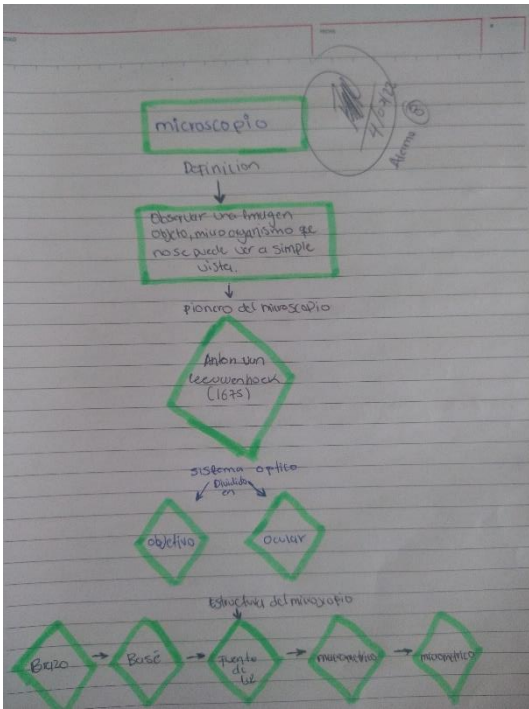 microscopio
Definicion
Observar una Imagen
objeto, microorganismo que
no se puede ver a simple
vista.
pionero del microscopio
Anton van
Leeuwenhoek
(1675)
sistema optico
Dividido
en
objetivo
ocular
Estructura del microscopio
Brazo
Base
Fuente
de
luz
macrometrico
micrometrico